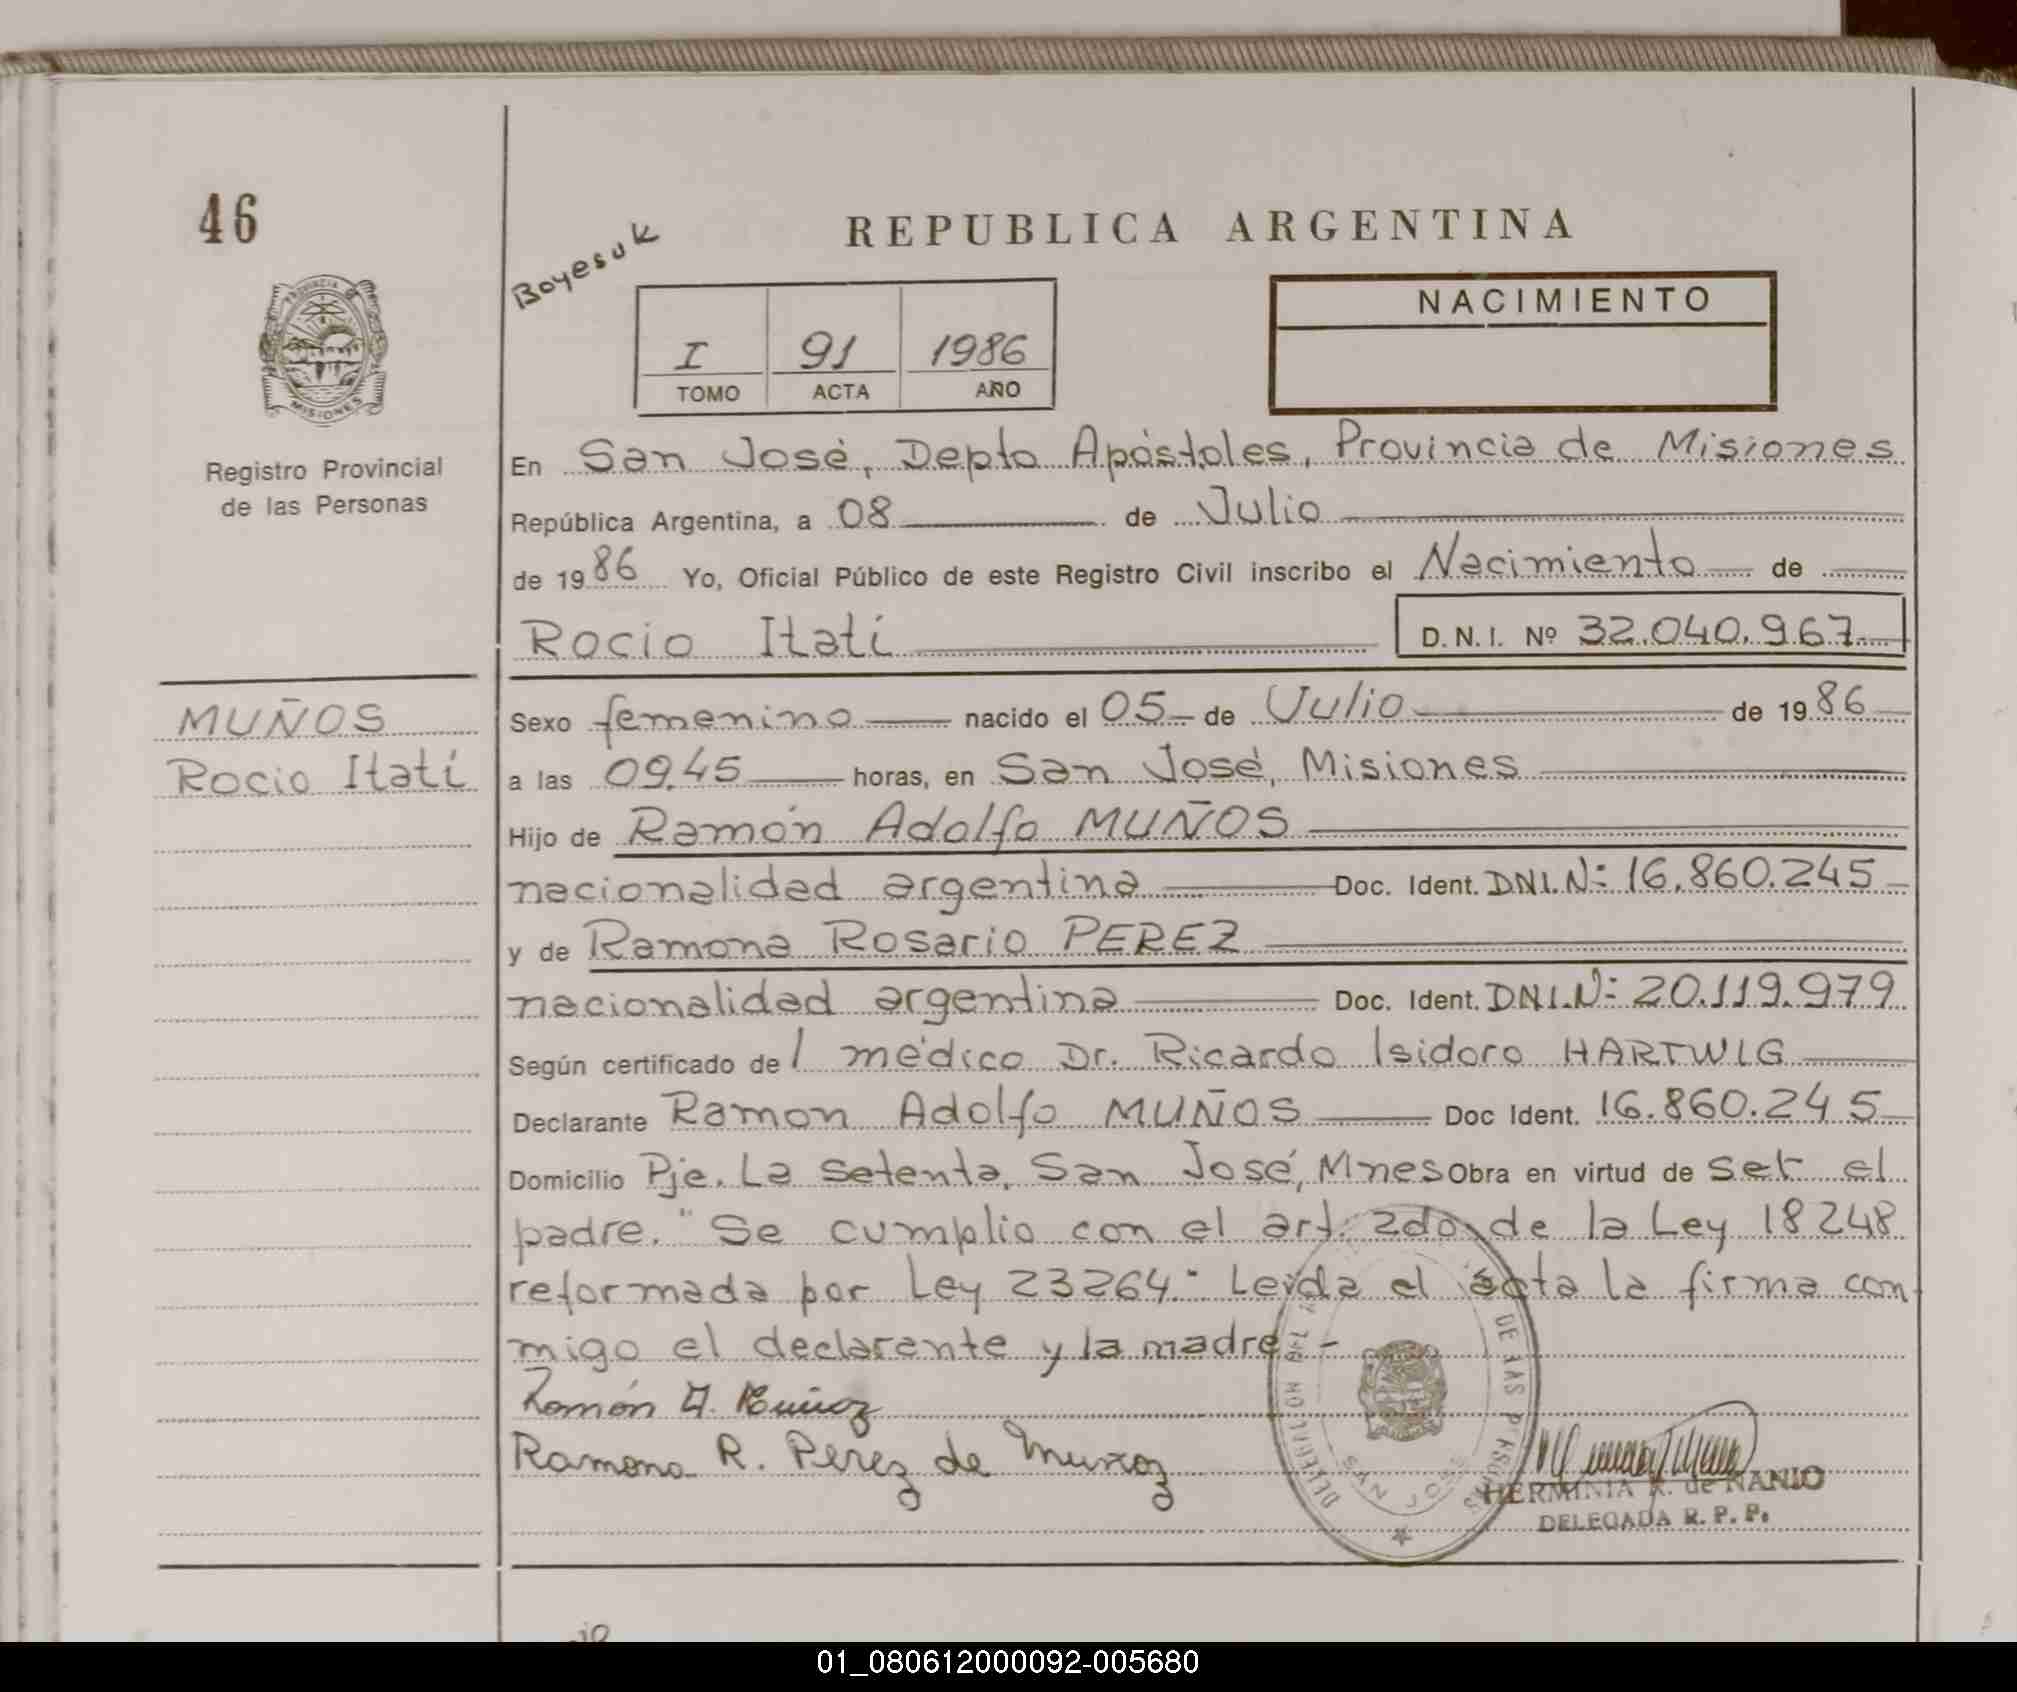 46
REPUBLICA ARGENTINA
Boyesuk
NACIMIENTO
I 91 1986
TOMO ACTA AÑO
PROVINCIA DE
MISIONES
Registro Provincial
de las Personas
En San José, Depto Apóstoles, Provincia de Misiones
República Argentina, a 08 de Julio
de 1986 Yo, Oficial Público de este Registro Civil inscribo el Nacimiento de
Rocio Itatí D.N.I. Nº 32.040.967
MUÑOS
Rocio Itatí
Sexo femenino nacido el 05 de Julio de 1986
a las 09.45 horas, en San José, Misiones
Hijo de Ramón Adolfo MUÑOS
nacionalidad argentina Doc. Ident. DNI.Nº: 16.860.245
y de Ramona Rosario PEREZ
nacionalidad argentina Doc. Ident. DNI.Nº: 20.119.979
Según certificado del médico Dr. Ricardo Isidoro HARTWIG
Declarante Ramon Adolfo MUÑOS Doc Ident. 16.860.245
Domicilio Pje. La Setenta, San José, Mnes Obra en virtud de ser el
padre. "Se cumplio con el art. 2do. de la Ley 18248
reformada por Ley 23264" Leída el acta la firma con-
migo el declarante y la madre.-
Ramón A. Muñoz
Ramona R. Perez de Munoz
DE LAS PERSONAS
SAN JOSE
HERMINIA K. de NANIO
DELEGADA R. P. P.
01_080612000092-005680